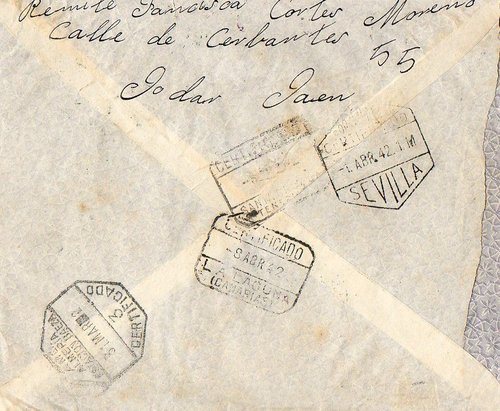 Remite Francisca Cortes Moreno
Calle de Cerbantes 55
Jodar Jaen
CERTIFICADO
CERTIFICADO
-1 ABR. 42. 1 M
SEVILLA
CERTIFICADO
-9 ABR 42
LA LAGUNA
(CANARIAS)
CERTIFICADO
3
31 MAR 42
ALMERIA
BAEZA